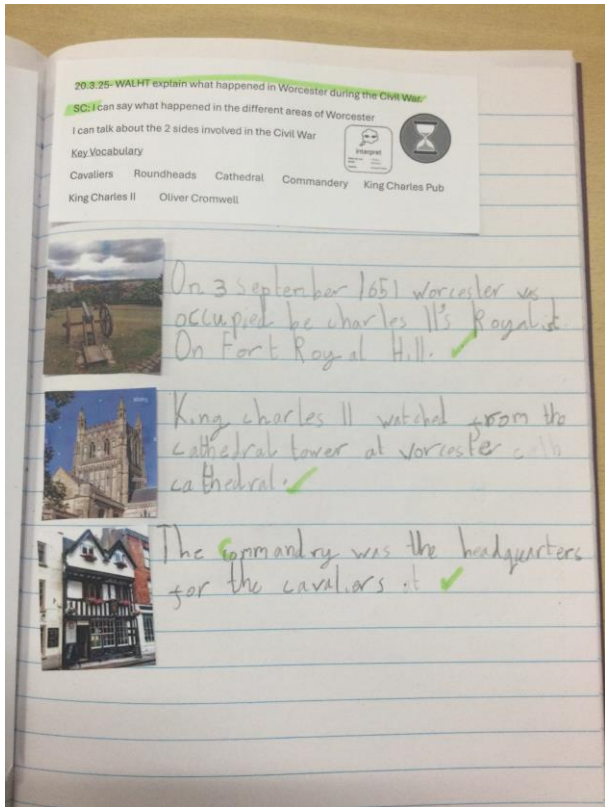 20.3.25- WALHT explain what happened in Worcester during the Civil War.
SC: I can say what happened in the different areas of Worcester
I can talk about the 2 sides involved in the Civil War
Interpret
Key Vocabulary
Cavaliers Roundheads Cathedral Commandery King Charles Pub
King Charles II Oliver Cromwell
On 3 September 1651 worcester was
occupied be charles II's Royalist
On Fort Royal Hill.
King charles II watched from the
cathedral tower at worcester
cathedral.
The Commandry was the headquarters
for the cavaliers